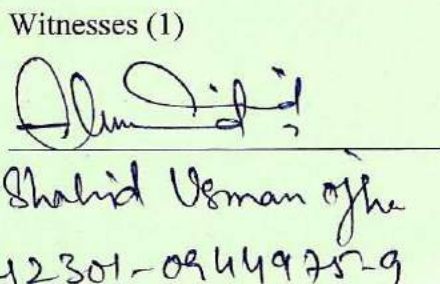 Witnesses (1)
Shahid Usman Ojha
42301-0944975-9